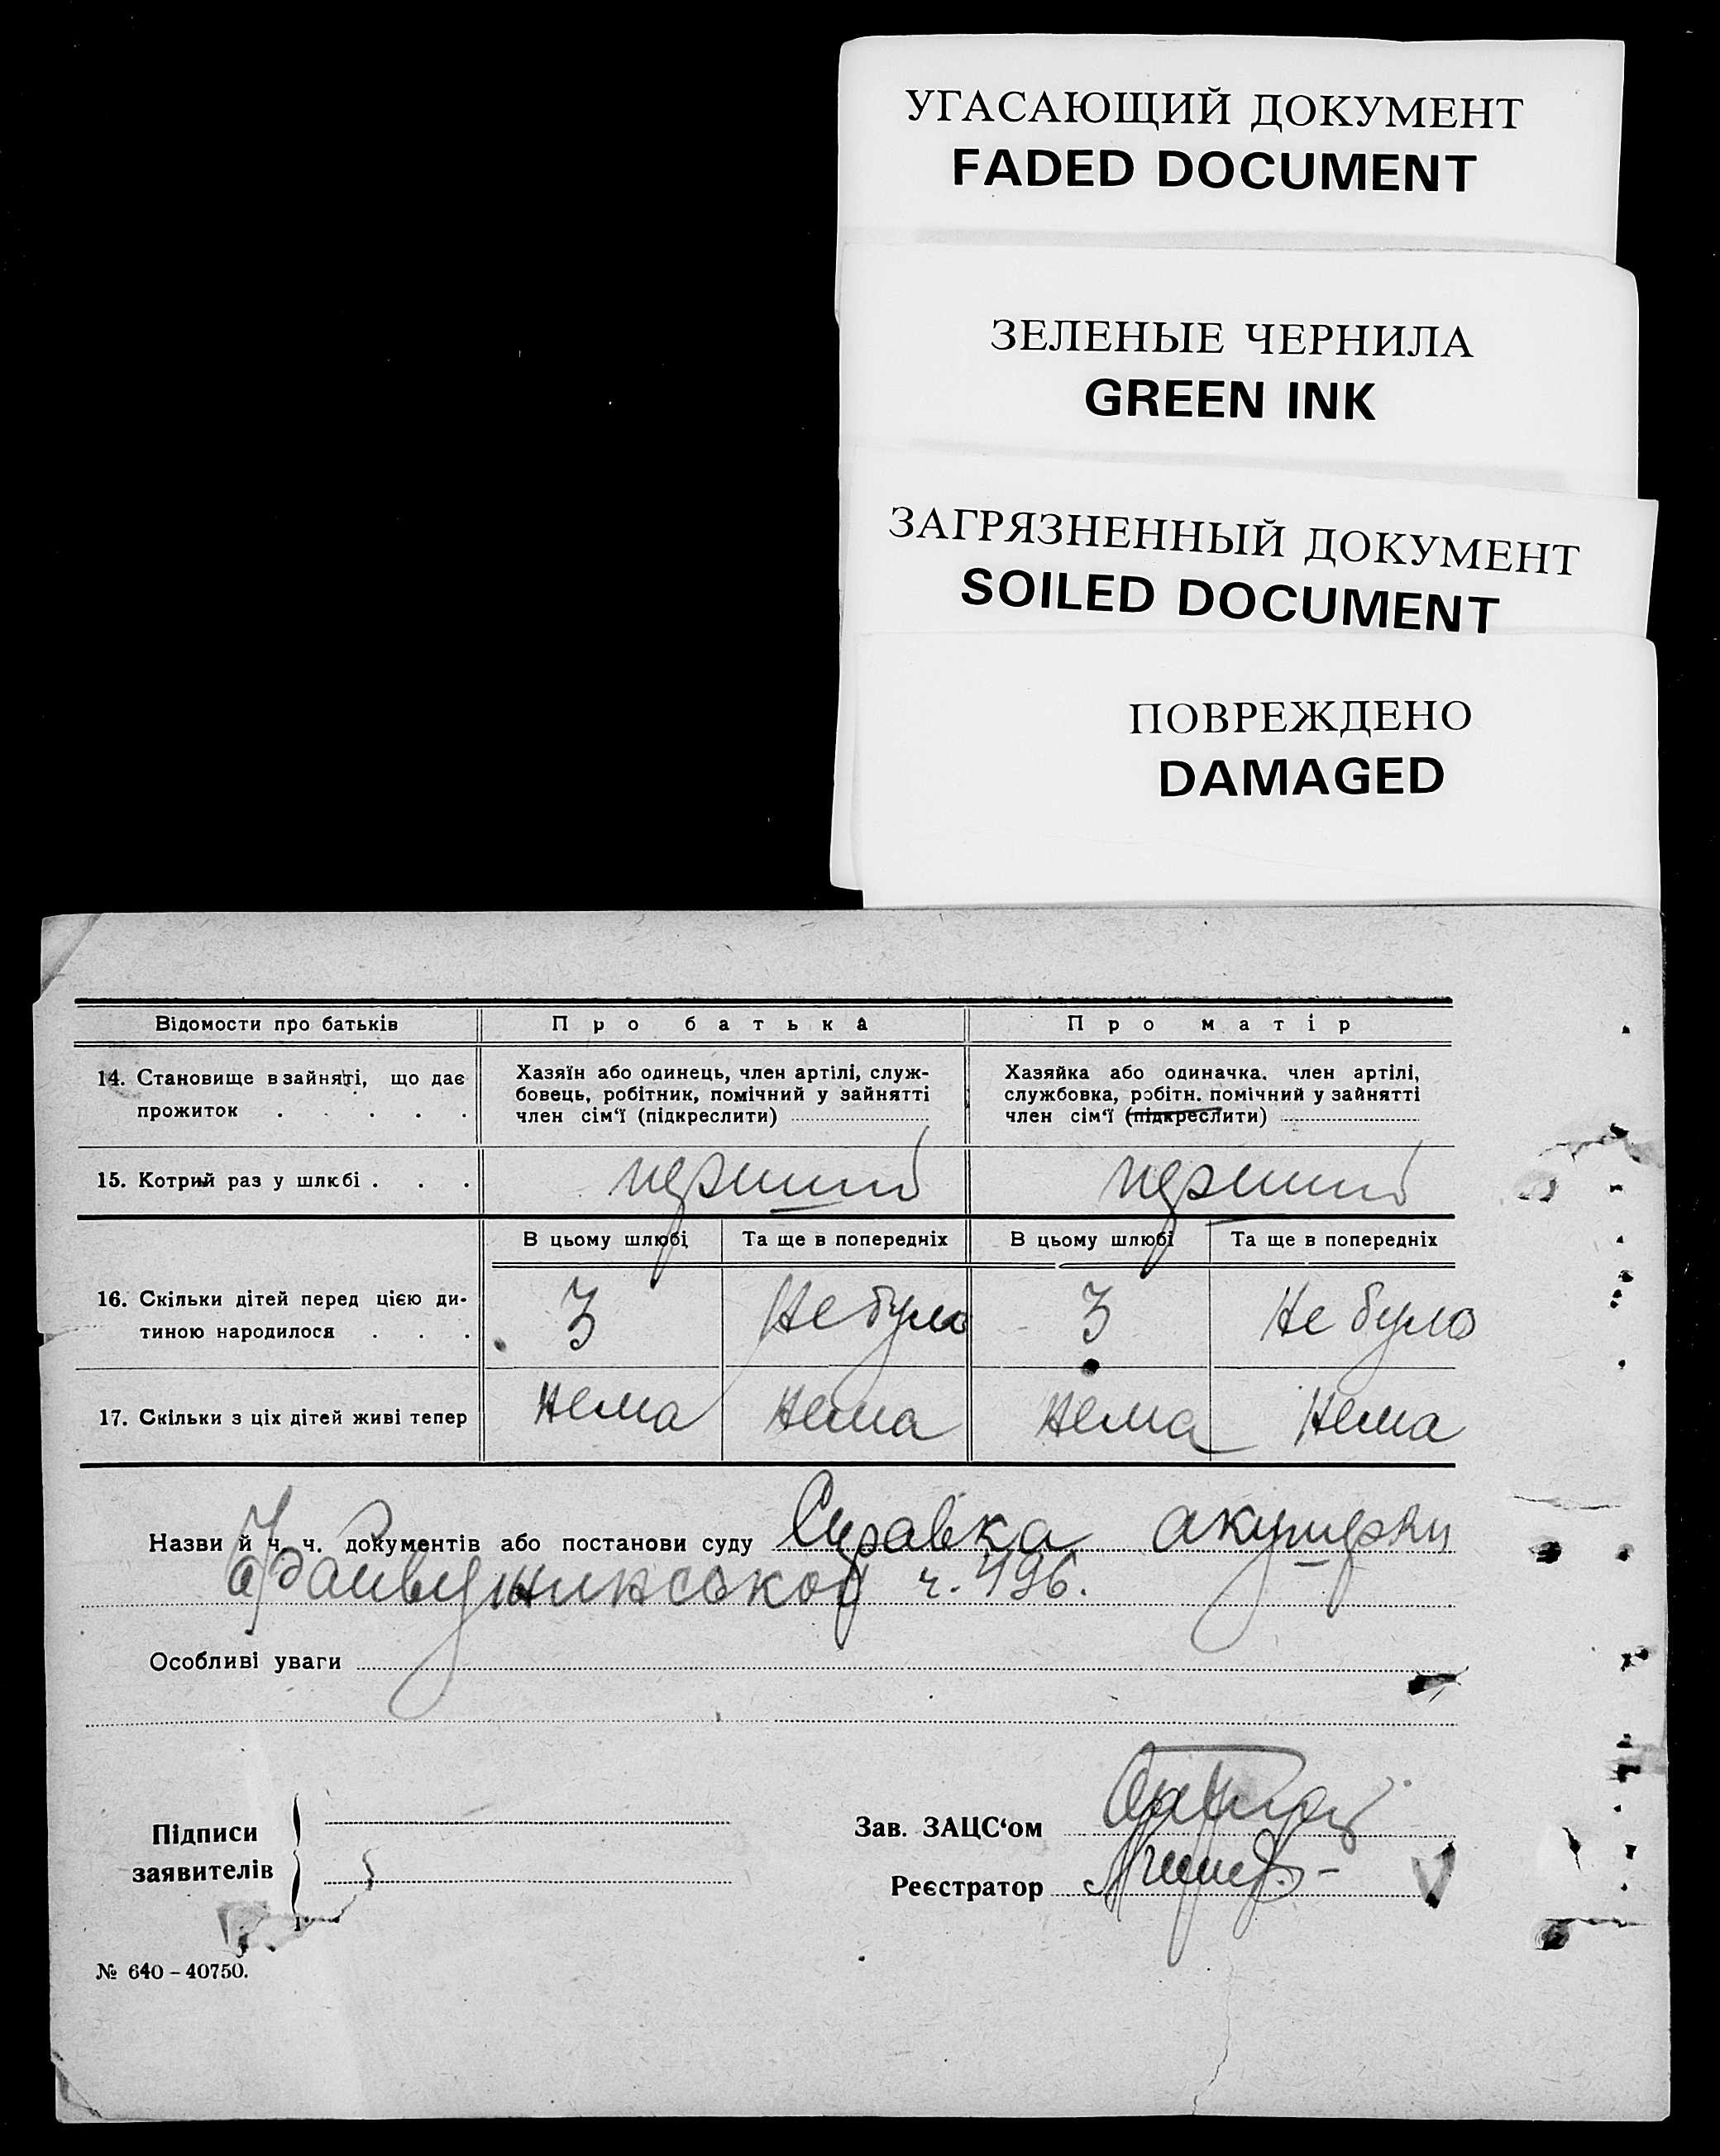 УГАСАЮЩИЙ ДОКУМЕНТ
FADED DOCUMENT
ЗЕЛЕНЫЕ ЧЕРНИЛА
GREEN INK
ЗАГРЯЗНЕННЫЙ ДОКУМЕНТ
SOILED DOCUMENT
ПОВРЕЖДЕНО
DAMAGED
Відомости про батьків Про батька Про матір
14. Становище в зайняті, що дає прожиток . . . . .
Хазяїн або одинець, член артілі, служ-
бовець, робітник, помічний у зайнятті
член сім'ї (підкреслити)
Хазяйка або одиначка. член артілі,
службовка, робітн. помічний у зайнятті
член сім'ї (підкреслити)
15. Котрий раз у шлюбі . . . перший перший
В цьому шлюбі Та ще в попередніх В цьому шлюбі Та ще в попередніх
16. Скільки дітей перед цією ди-
тиною народилося . . . 3 Не було 3 Не було
17. Скільки з ціх дітей живі тепер Нема Нема Нема Нема
Назви й ч. ч. документів або постанови суду Справка акушерки
ч. 496.
Особливі уваги
Підписи
заявителів
Зав. ЗАЦС'ом
Реєстратор
№ 640 – 40750.